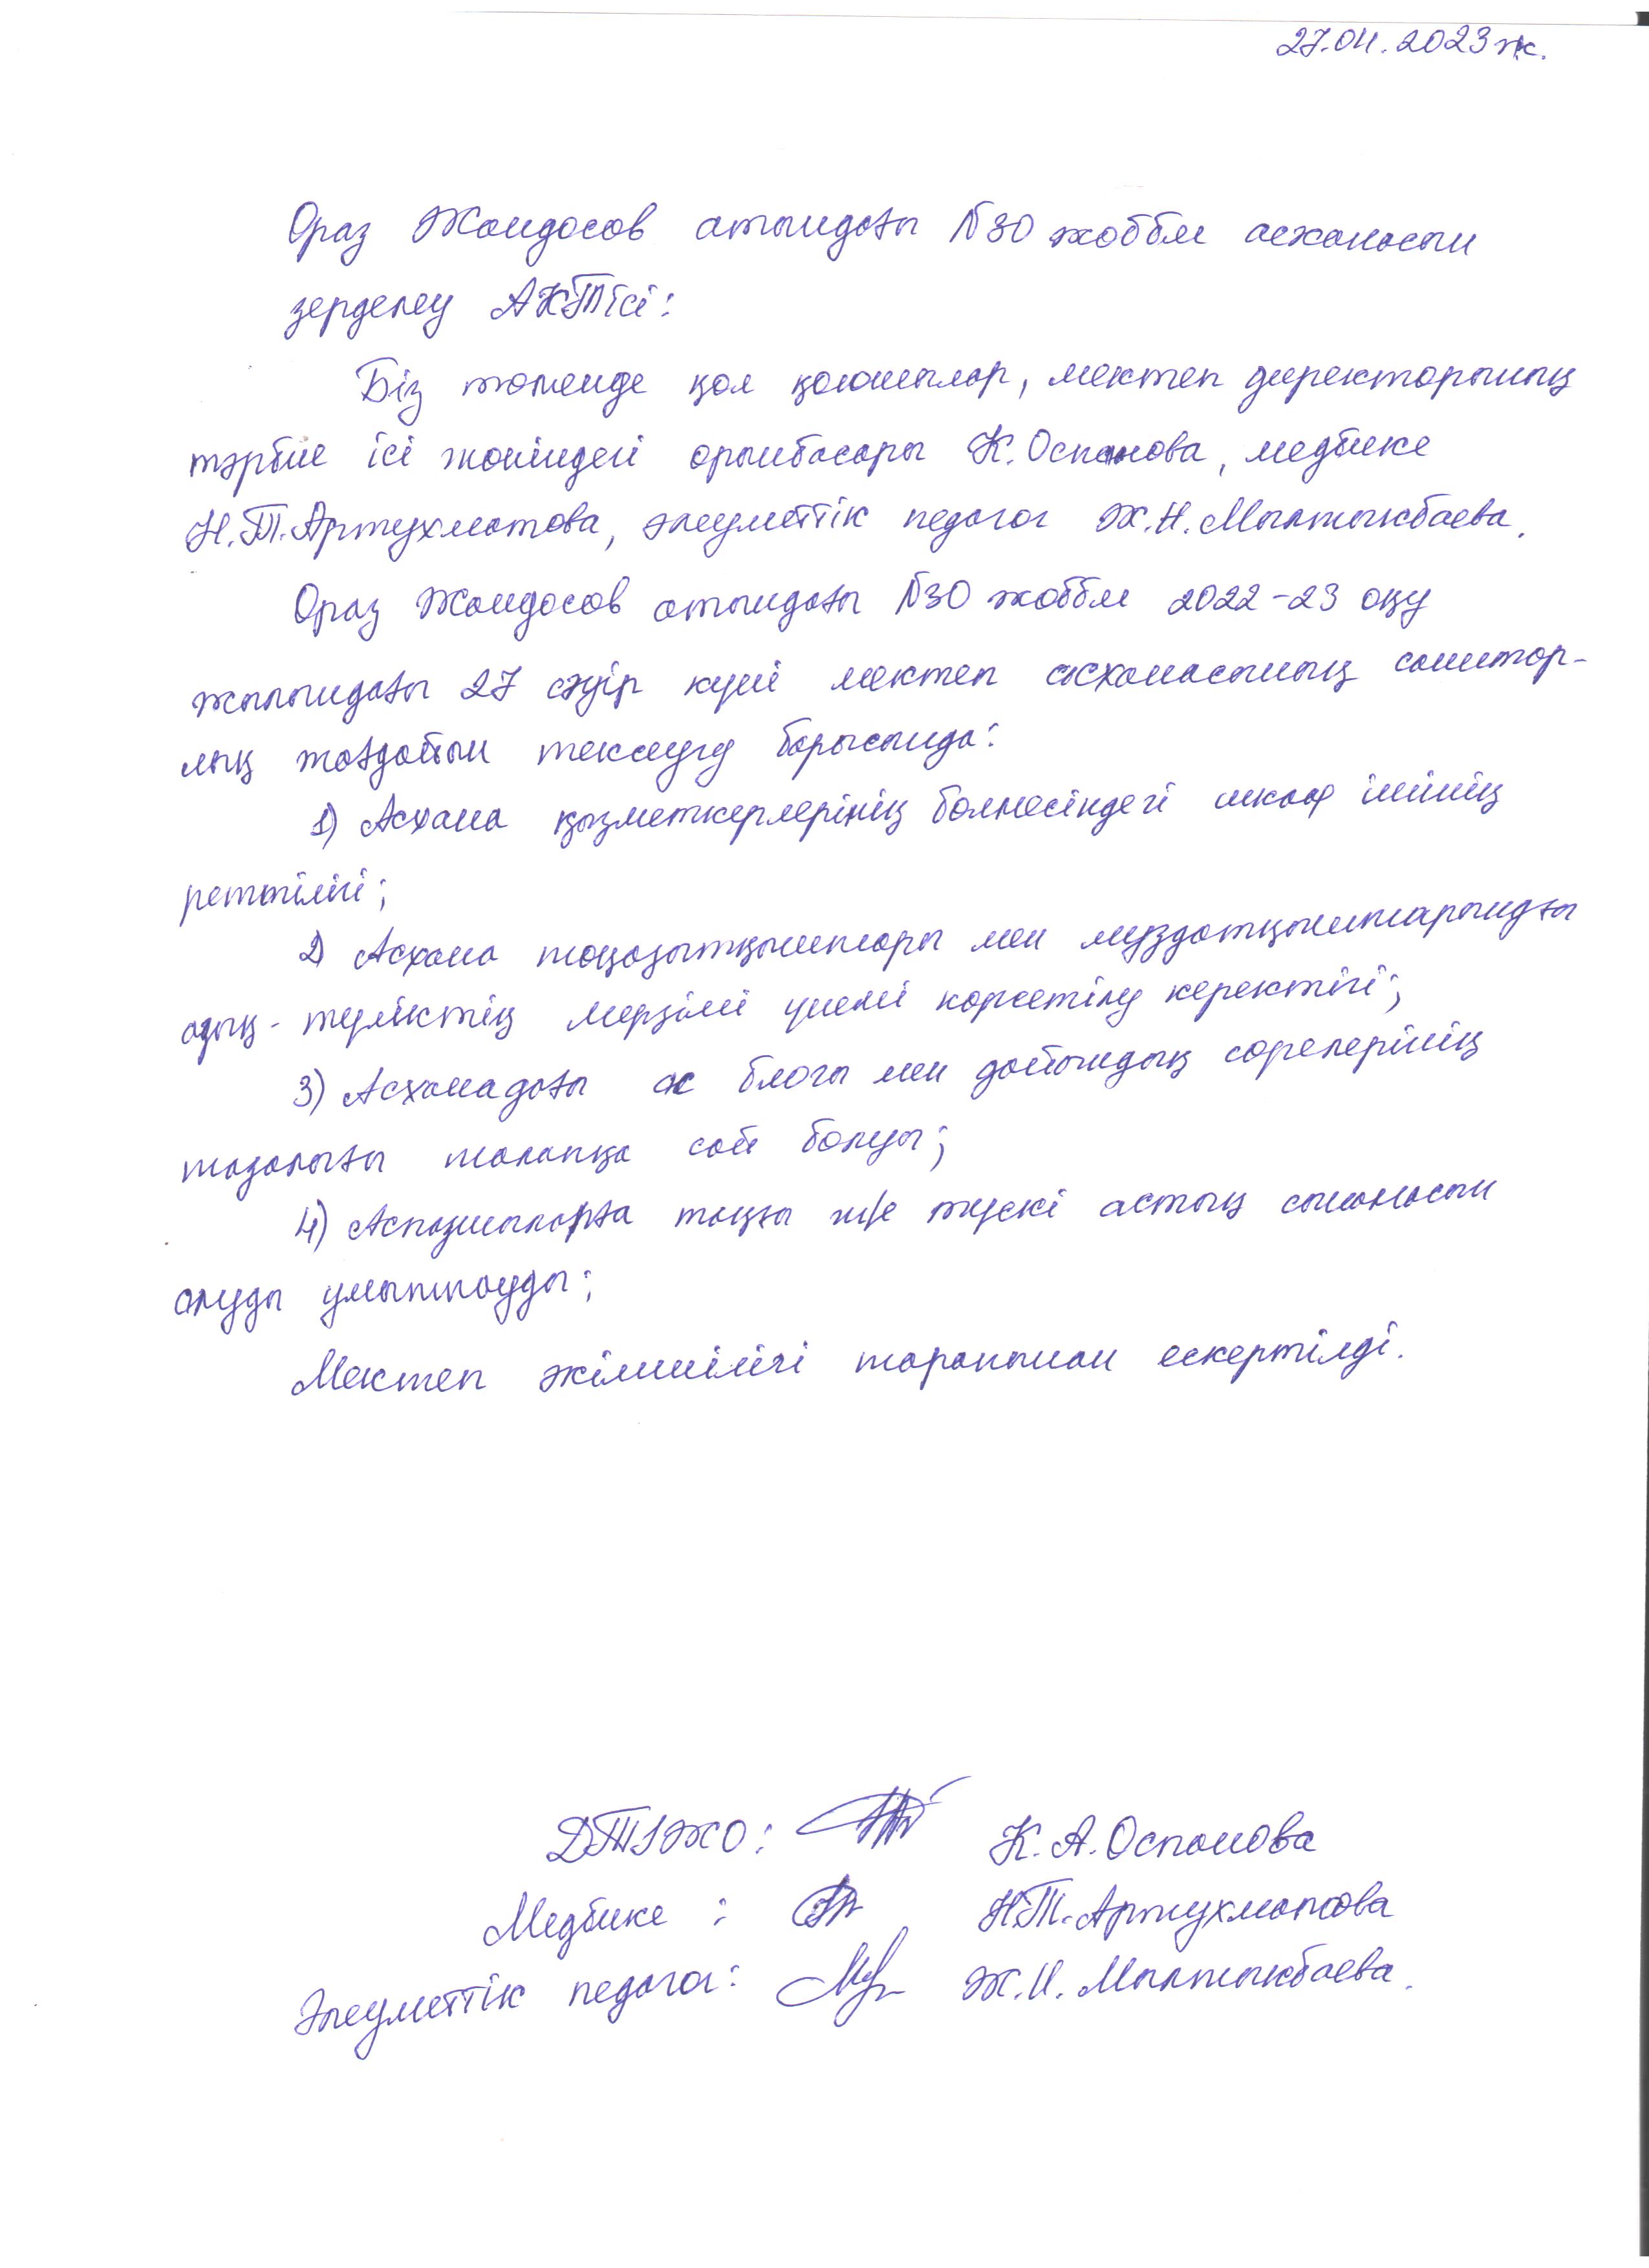 27.04.2023ж.
Ораз Жандосов атындағы №30 жоббм асханасын
зерделеу АКТІсі:
Біз төменде қол қоюшылар, мектеп директорының
тәрбие ісі жөніндегі орынбасары К. Оспанова, медбике
Н.Т. Артухматова, әлеуметтік педагог Ж.Н. Мылтыкбаева.
Ораз Жандосов атындағы №30 жоббм 2022-23 оқу
жылындағы 27 сәуір күні мектеп асханасының санитар-
лық жағдайын тексеру барысында:
1) Асхана қызметкерлерінің бөлмесіндегі шкаф ішінің
реттілігі;
2) Асхана тоңазытқыштары мен мұздатқыштарындғы
азық-түліктің мерзімі үнемі көрсетілу керектігі;
3) Асханадағы ас блогы мен дайындық сөрелерінің
тазалығы талапқа сай болуы;
4) Аспазшыларға таңғы ж/е түскі астың сынамасын
алуды ұмытпауды;
Мектеп әкімшілігі тарапынан ескертілді.
ДТІЖО: К. А. Оспанова
Медбике : Н.Т. Артухматова
Әлеуметтік педагог: Ж.Н. Мылтыкбаева.